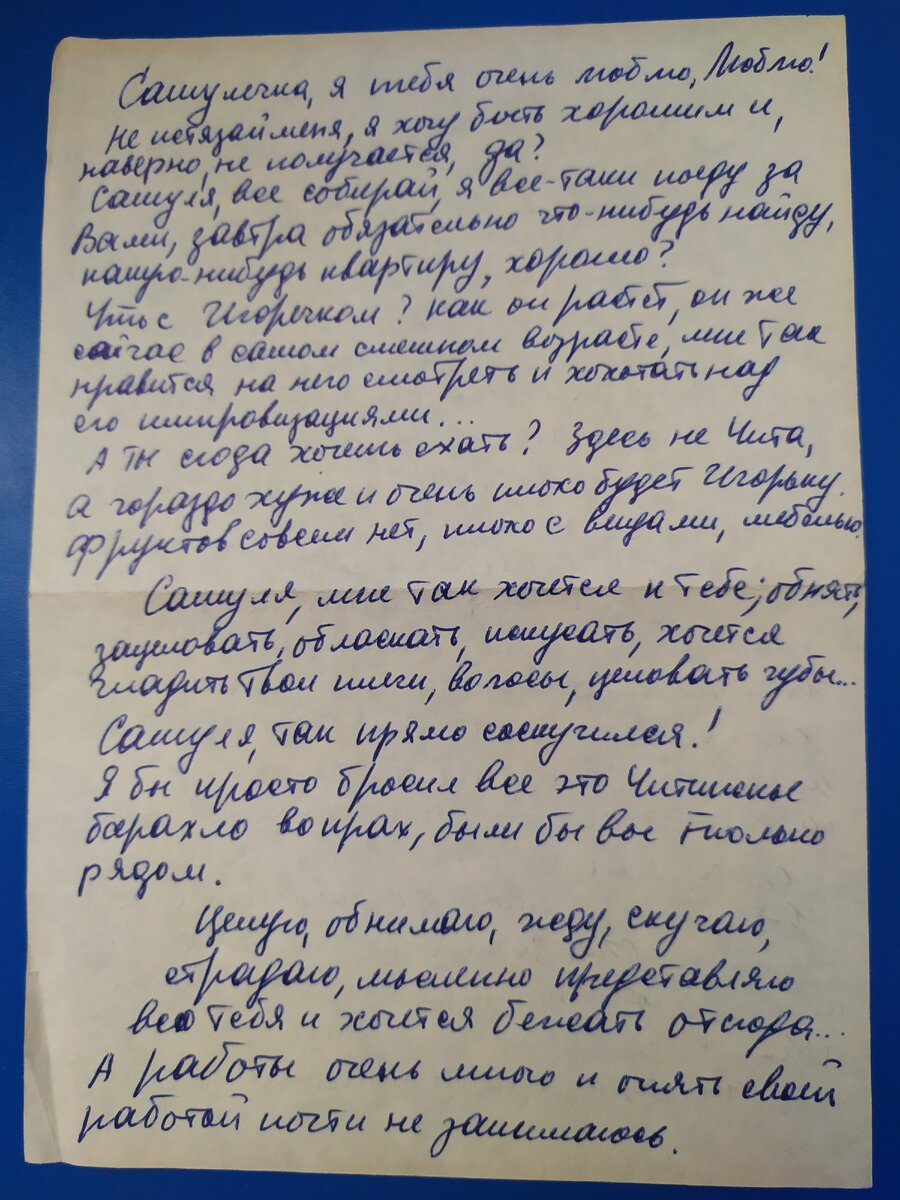 Сашулечка, я тебя очень люблю, Люблю!
Не истязай меня, я хочу быть хорошим и,
наверно, не получается, да?
Сашуля, все собирай, я все-таки поеду за
Вами, завтра обязательно что-нибудь найду,
какую-нибудь квартиру, хорошо?
Что с Игоречком? Как он растёт, он же
сейчас в самом смешном возрасте, мне так
нравится на него смотреть и хохотать над
его импровизациями...
А ты сюда хочешь ехать? Здесь не Чита,
а гораздо хуже и очень плохо будет Игорьку.
Фруктов совсем нет, плохо с вещами, мебелью.
Сашуля, мне так хочется к тебе; обнять,
зацеловать, обласкать, искусать, хочется
гладить Твои плечи, волосы, целовать губы...
Сашуля, так прямо соскучился!
Я бы просто бросил все это Читинское
барахло в прах, были бы вы только
рядом.
Целую, обнимаю, жду, скучаю,
страдаю, мысленно представляю
всю тебя и хочется бежать отсюда...
А работы очень много и опять своей
работой почти не занимаюсь.